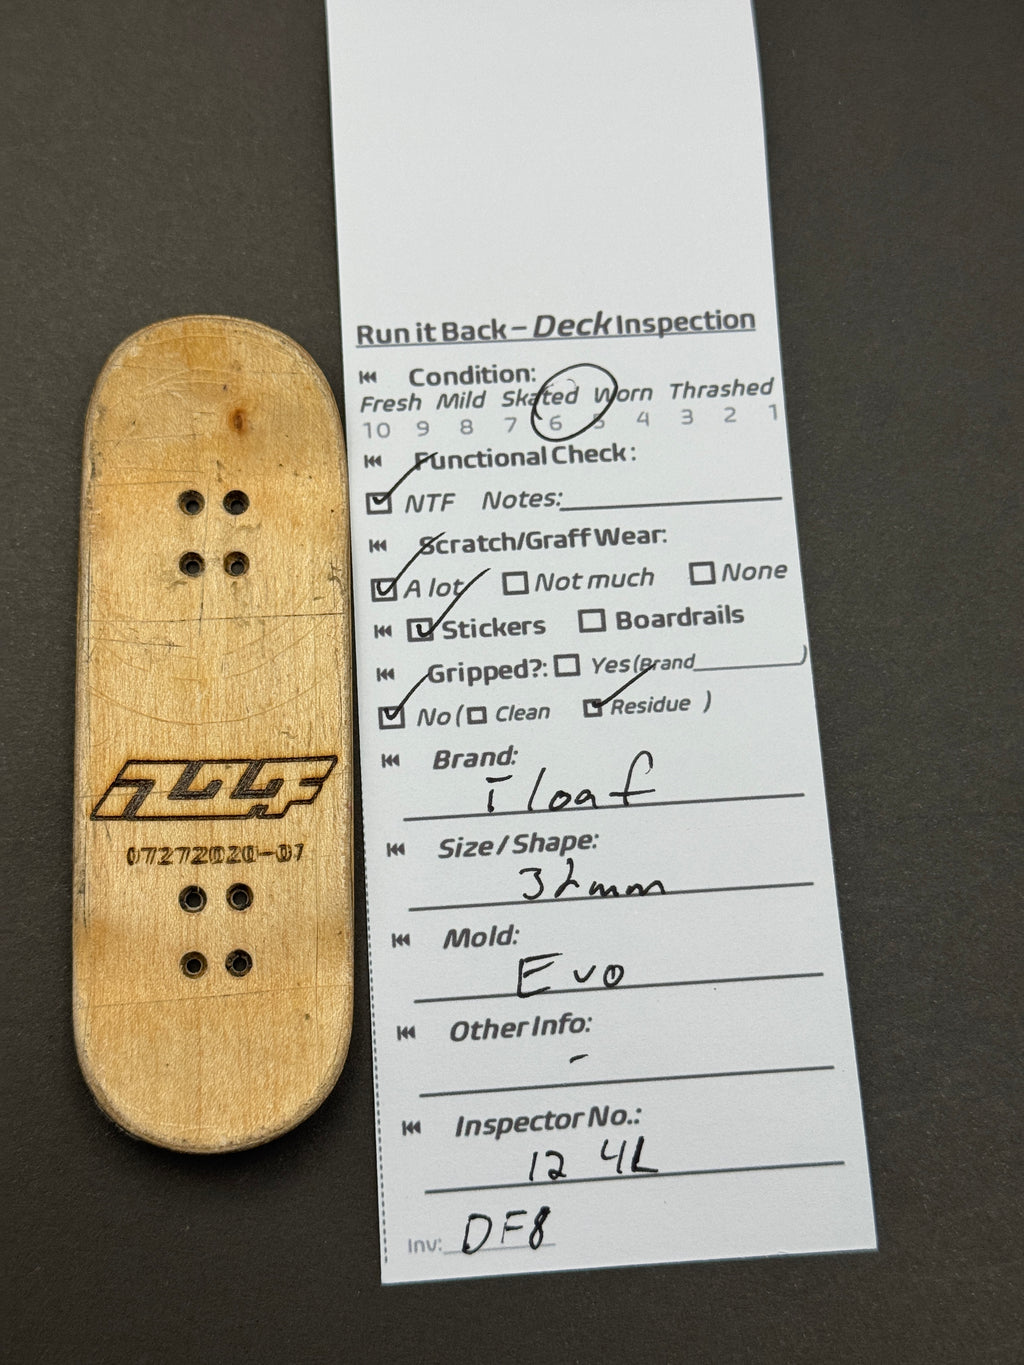 Run it Back – Deck Inspection
Condition:
Fresh Mild Skated Worn Thrashed
10 9 8 7 6 5 4 3 2 1
Functional Check:
NTF Notes:
Scratch/Graff Wear:
A lot Not much None
Stickers Boardrails
Gripped?: Yes(Brand )
No ( Clean Residue )
Brand:
iloaf
Size / Shape:
32mm
Mold:
Evo
Other Info:
-
Inspector No.:
12 4L
Inv: DF8
07272020-01